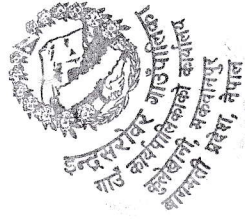 इन्द्रसरोवर गाउँपालिका
गाउँ कार्यपालिकाको कार्यालय
कुलेखानी, मकवानपुर
बागमती प्रदेश, नेपाल